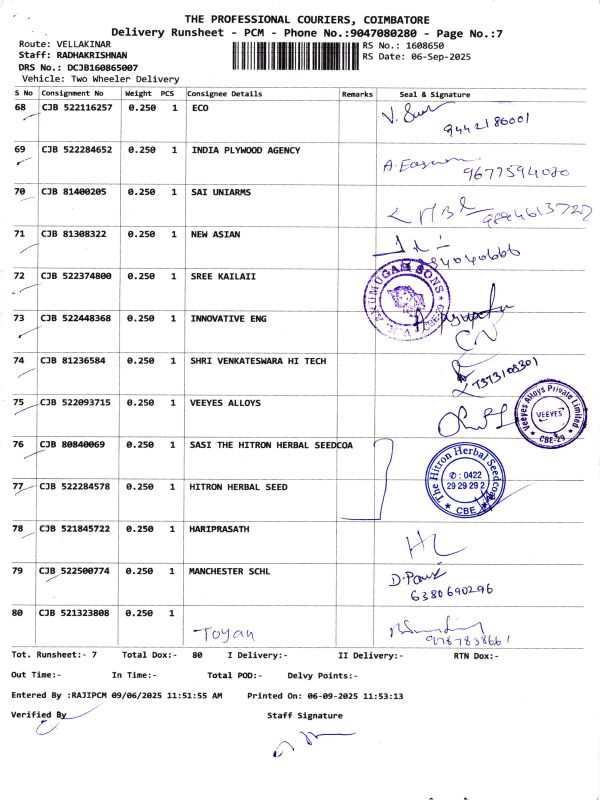 THE PROFESSIONAL COURIERS, COIMBATORE
Delivery Runsheet - PCM - Phone No.:9047080280 - Page No.:7
Route: VELLAKINAR
RS No.: 1608650
Staff: RADHAKRISHNAN
RS Date: 06-Sep-2025
DRS No.: DCJB160865007
Vehicle: Two Wheeler Delivery
S No Consignment No Weight PCS Consignee Details Remarks Seal & Signature
68 CJB 522116257 0.250 1 ECO
9442180001
69 CJB 522284652 0.250 1 INDIA PLYWOOD AGENCY
9677594080
70 CJB 81400205 0.250 1 SAI UNIARMS
9894613727
71 CJB 81308322 0.250 1 NEW ASIAN
72 CJB 522374800 0.250 1 SREE KAILAII
ARUMUGAM SONS
CBE-29
73 CJB 522448368 0.250 1 INNOVATIVE ENG
74 CJB 81236584 0.250 1 SHRI VENKATESWARA HI TECH
7373109301
75 CJB 522093715 0.250 1 VEEYES ALLOYS
Veeyes Alloys Private Limited
VEEYES
CBE-29
76 CJB 80840069 0.250 1 SASI THE HITRON HERBAL SEEDCOA
The Hitron Herbal Seedcoa
✆ : 0422
29 29 29 2
CBE
77 CJB 522284578 0.250 1 HITRON HERBAL SEED
78 CJB 521845722 0.250 1 HARIPRASATH
79 CJB 522500774 0.250 1 MANCHESTER SCHL
6380690296
80 CJB 521323808 0.250 1
Toyan
Tot. Runsheet:- 7 Total Dox:- 80 I Delivery:- II Delivery:- RTN Dox:-
Out Time:- In Time:- Total POD:- Delvy Points:-
Entered By :RAJIPCM 09/06/2025 11:51:55 AM Printed On: 06-09-2025 11:53:13
Verified By Staff Signature